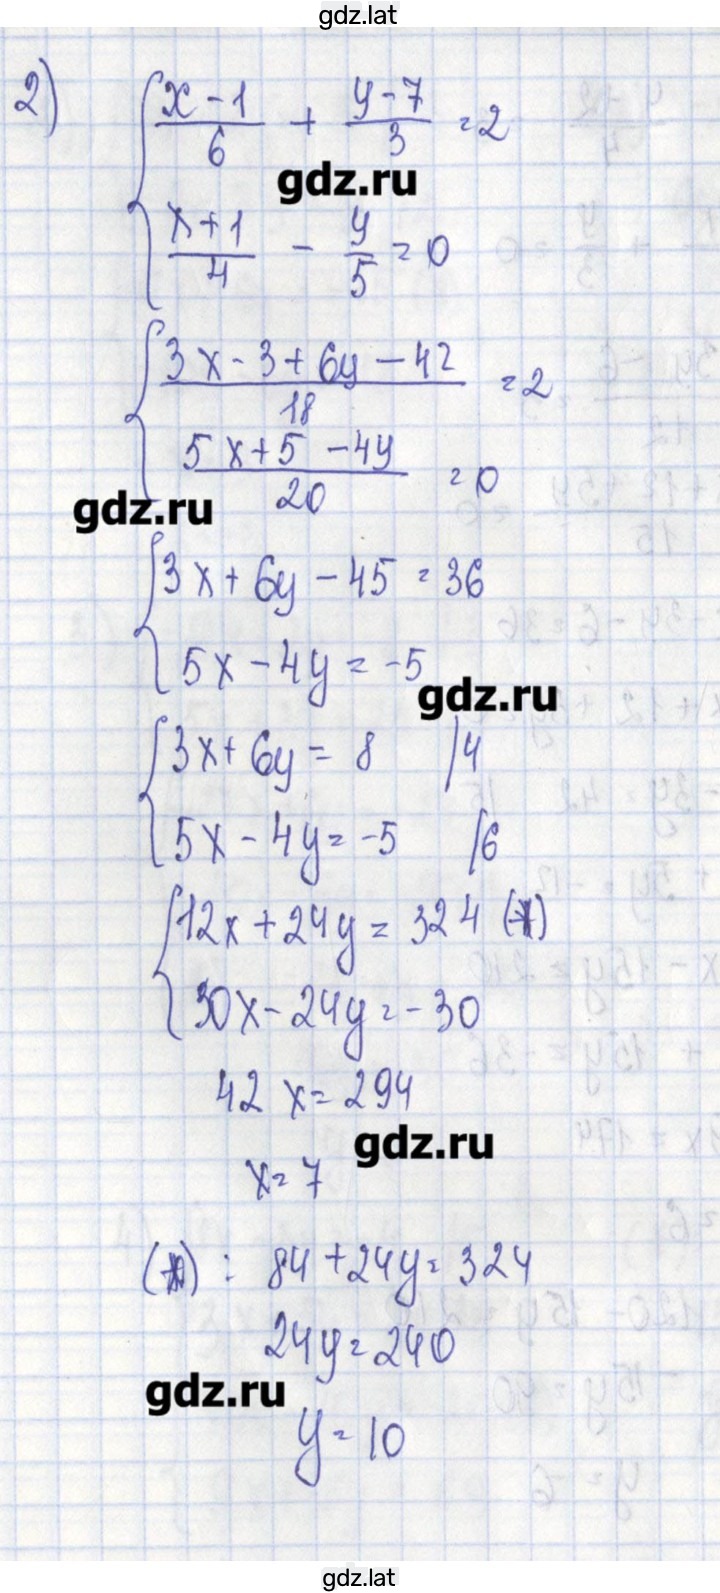 gdz.lat
2) { (x-1)/6 + (y-7)/3 = 2
gdz.ru
(x+1)/4 - y/5 = 0
{ (3x-3+6y-42)/18 = 2
(5x+5-4y)/20 = 0
gdz.ru
{ 3x+6y-45=36
5x-4y=-5
gdz.ru
{ 3x+6y=8 /4
5x-4y=-5 /6
{ 12x+24y=324 (*)
30x-24y=-30
42x=294
gdz.ru
x=7
(*): 84+24y=324
24y=240
gdz.ru
y=10
gdz.lat